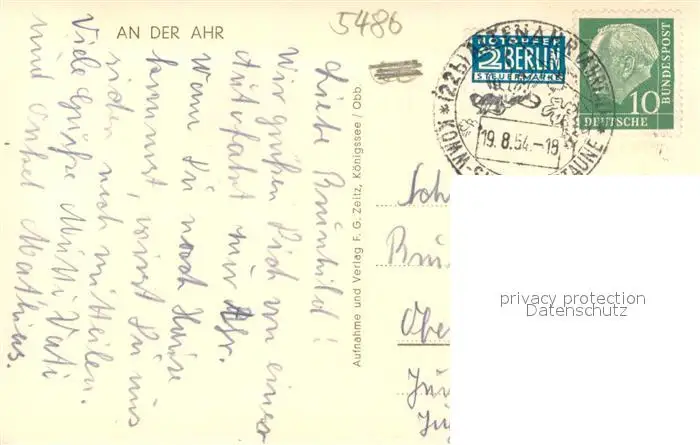 AN DER AHR
5486
Liebe Brünhild!
Wir grüßen Dich von einer
Autofahrt zur Ahr.
Wenn Du nach Hause
kommst, wirst Du uns
sicher mitteilen.
Viele Grüße Mutti Vati
und Onkel Mathias.
Aufnahme und Verlag F. G. Zeitz, Königssee / Obb.
NOTOPFER
2 BERLIN
STEUERMARKE
(22b)
19.8.54.-18
KOMM
10
DEUTSCHE
BUNDESPOST
Sch
Brün
Obe
privacy protection
Datenschutz